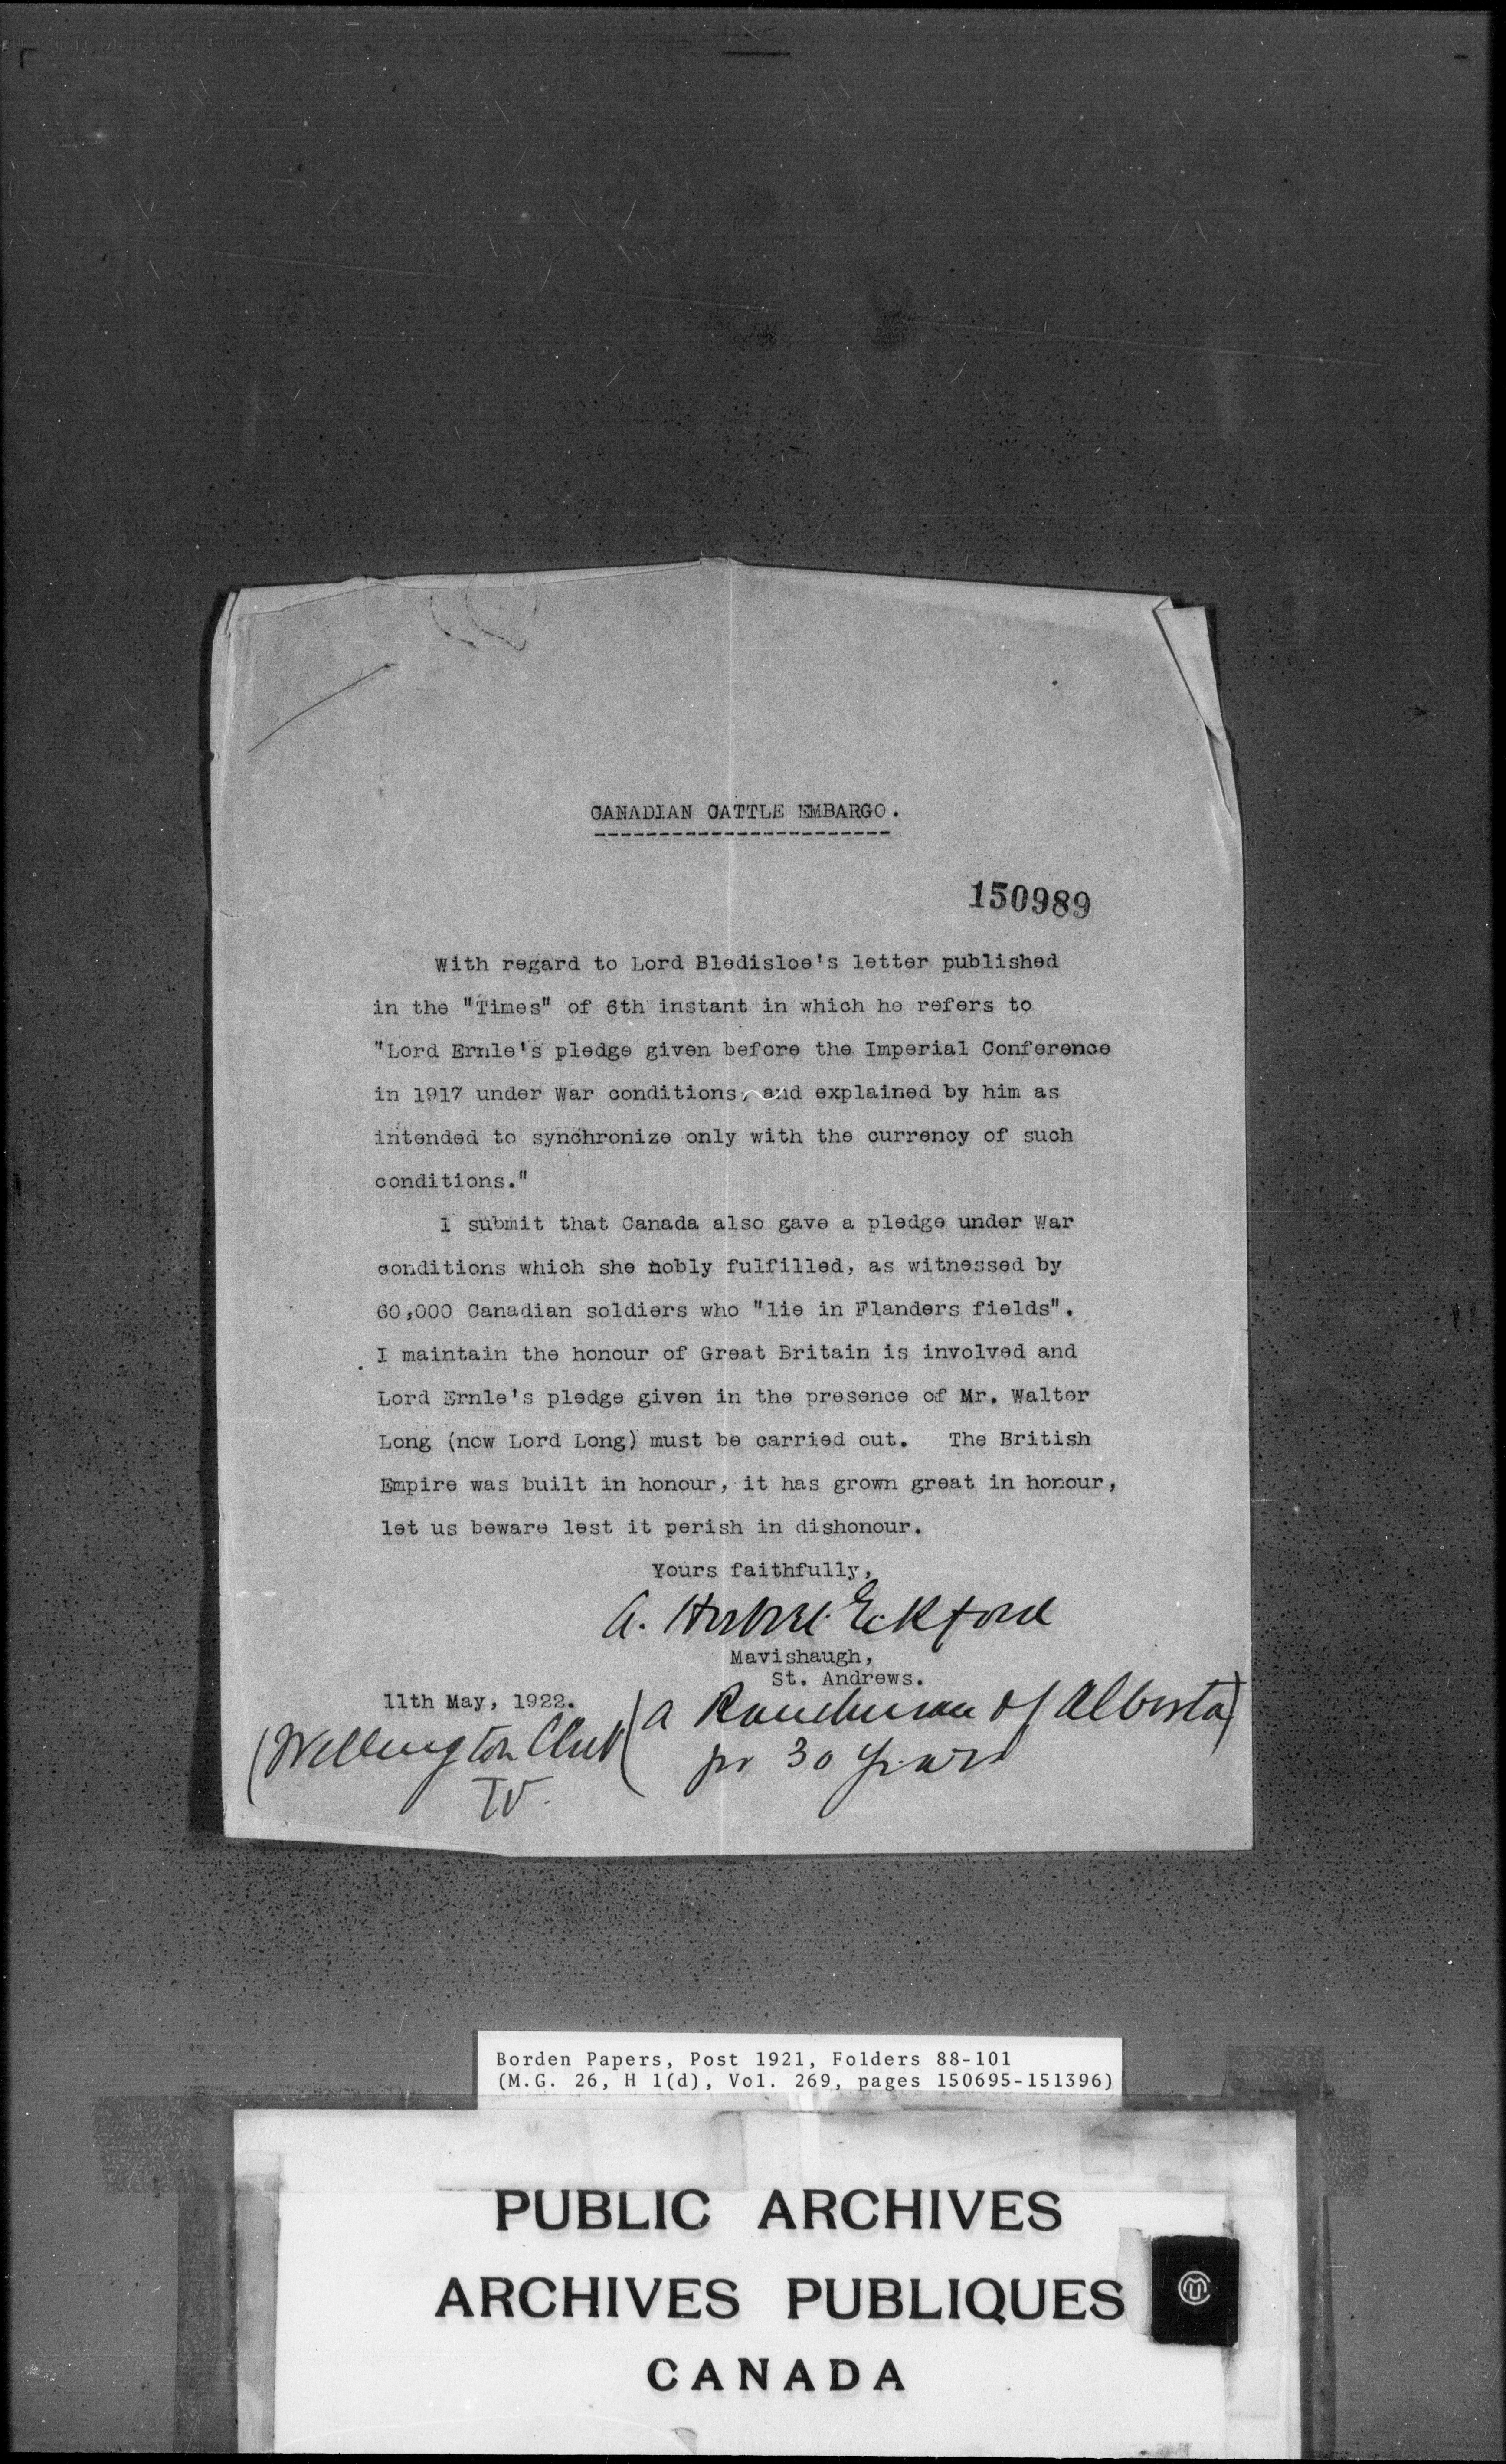 CANADIAN CATTLE EMBARGO.
150989
With regard to Lord Bledisloe's letter published
in the "Times" of 6th instant in which he refers to
"Lord Ernle's pledge given before the Imperial Conference
in 1917 under War conditions, and explained by him as
intended to synchronize only with the currency of such
conditions."
I submit that Canada also gave a pledge under War
conditions which she nobly fulfilled, as witnessed by
60,000 Canadian soldiers who "lie in Flanders fields".
I maintain the honour of Great Britain is involved and
Lord Ernle's pledge given in the presence of Mr. Walter
Long (now Lord Long) must be carried out. The British
Empire was built in honour, it has grown great in honour,
let us beware lest it perish in dishonour.
Yours faithfully,
A. Eckford
Mavishaugh,
St. Andrews.
11th May, 1922.
(a Ranchman of Alberta)
for 30 years
(Wellington Club
Borden Papers, Post 1921, Folders 88-101
(M.G. 26, H 1(d), Vol. 269, pages 150695-151396)
PUBLIC ARCHIVES
ARCHIVES PUBLIQUES
CANADA